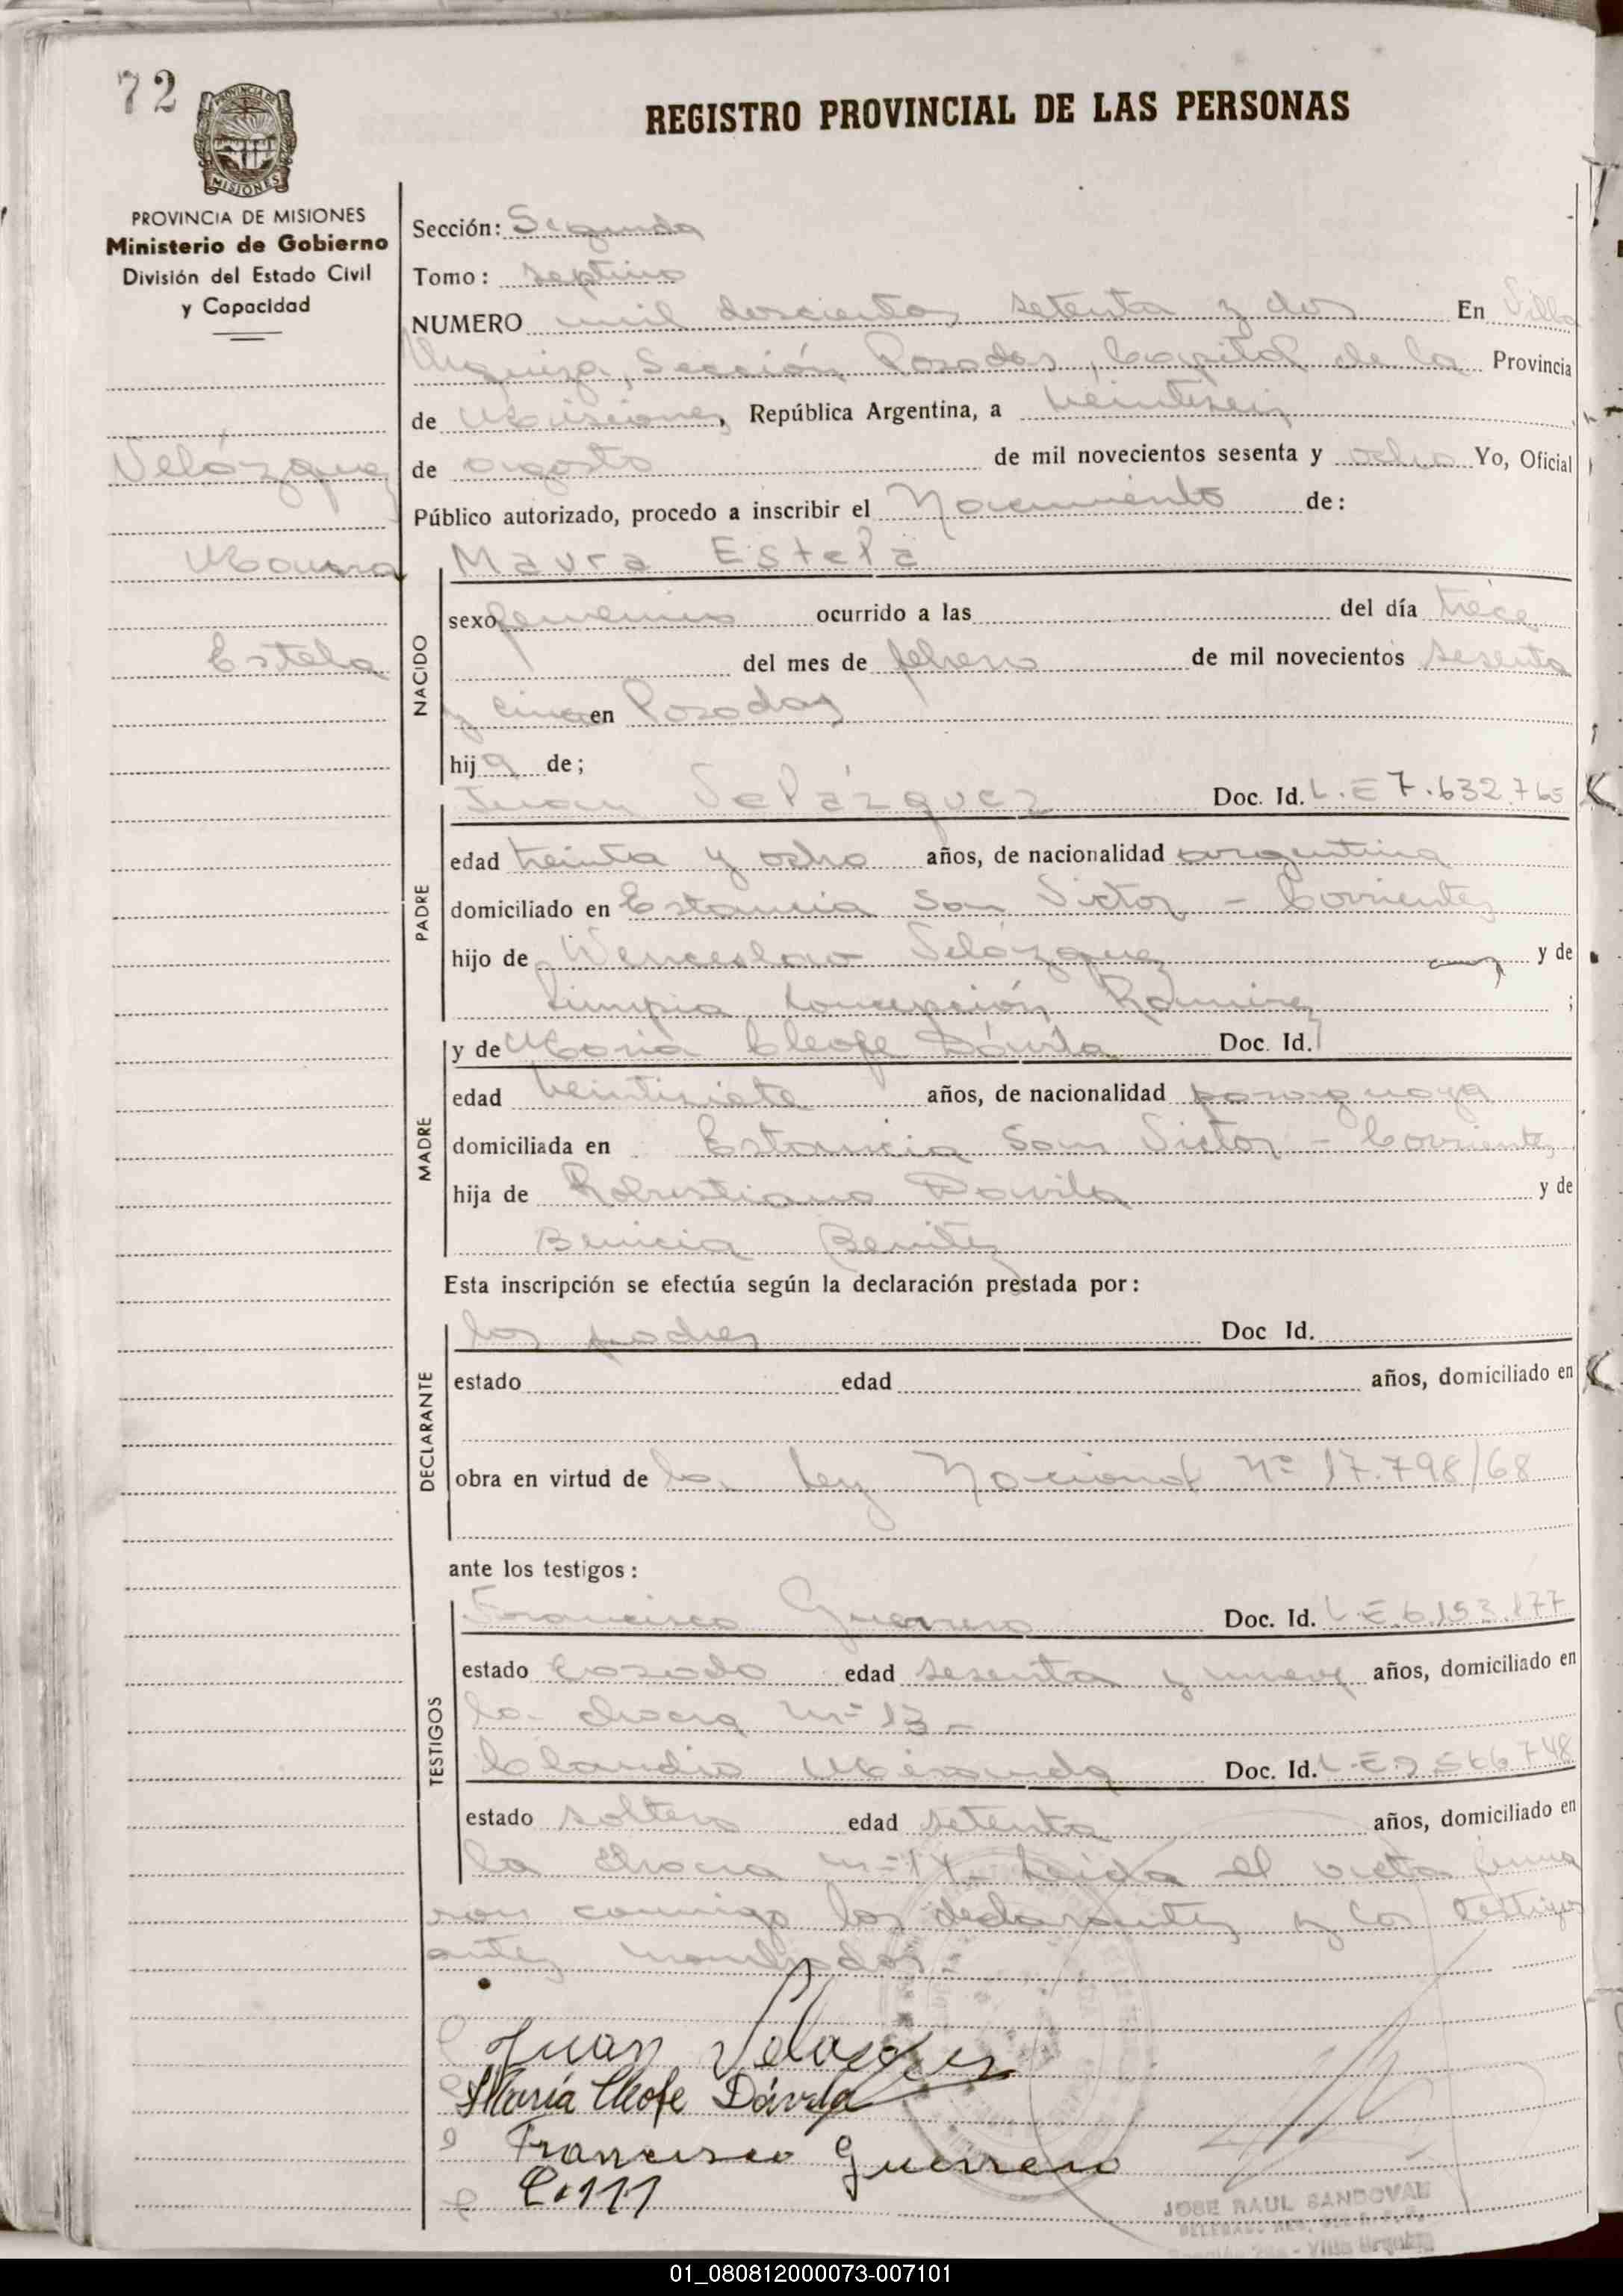 72
REGISTRO PROVINCIAL DE LAS PERSONAS
PROVINCIA DE MISIONES
PROVINCIA DE MISIONES
Ministerio de Gobierno
División del Estado Civil
y Capacidad
Velázquez
Maura
Estela
Sección: Segunda
Tomo: septimo
NUMERO mil doscientos setenta y dos En Villa
Urquiza, Sección Posadas, Capital de la Provincia
de Misiones, República Argentina, a veintiseis
de agosto de mil novecientos sesenta y ocho Yo, Oficial
Público autorizado, procedo a inscribir el Nacimiento de:
Maura Estela
NACIDO
sexo femenino ocurrido a las del día trece
del mes de febrero de mil novecientos sesenta
y cinco en Posadas
hija de;
PADRE
Juan Velázquez Doc. Id. L.E 7.632.765
edad treinta y ocho años, de nacionalidad argentina
domiciliado en Estancia San Victor - Corrientes
hijo de Wenceslao Velázquez y de
Limpia Concepción Ramirez ;
MADRE
y de Maria Cleofe Dávila Doc. Id.
edad veintisiete años, de nacionalidad paraguaya
domiciliada en Estancia San Victor - Corrientes
hija de Robustiano Davila y de
Benicia Benitez
Esta inscripción se efectúa según la declaración prestada por:
DECLARANTE
los padres Doc Id.
estado edad años, domiciliado en
obra en virtud de la Ley Nacional Nº 17.798/68
ante los testigos:
TESTIGOS
Francisco Guerrero Doc. Id. L.E 6.153.177
estado casado edad sesenta y nueve años, domiciliado en
la chacra nº 13-
Claudio Miranda Doc. Id. L.E 2.566.748
estado soltero edad setenta años, domiciliado en
la chacra nº Leida el acta firma
ron conmigo los declarantes y los testigos
antes nombrados.
Juan Velasquez
María Cleofe Dávila
Francisco Guerrero
C.111
JOSE RAUL SANDOVAL
- Villa Urquiza
01_080812000073-007101